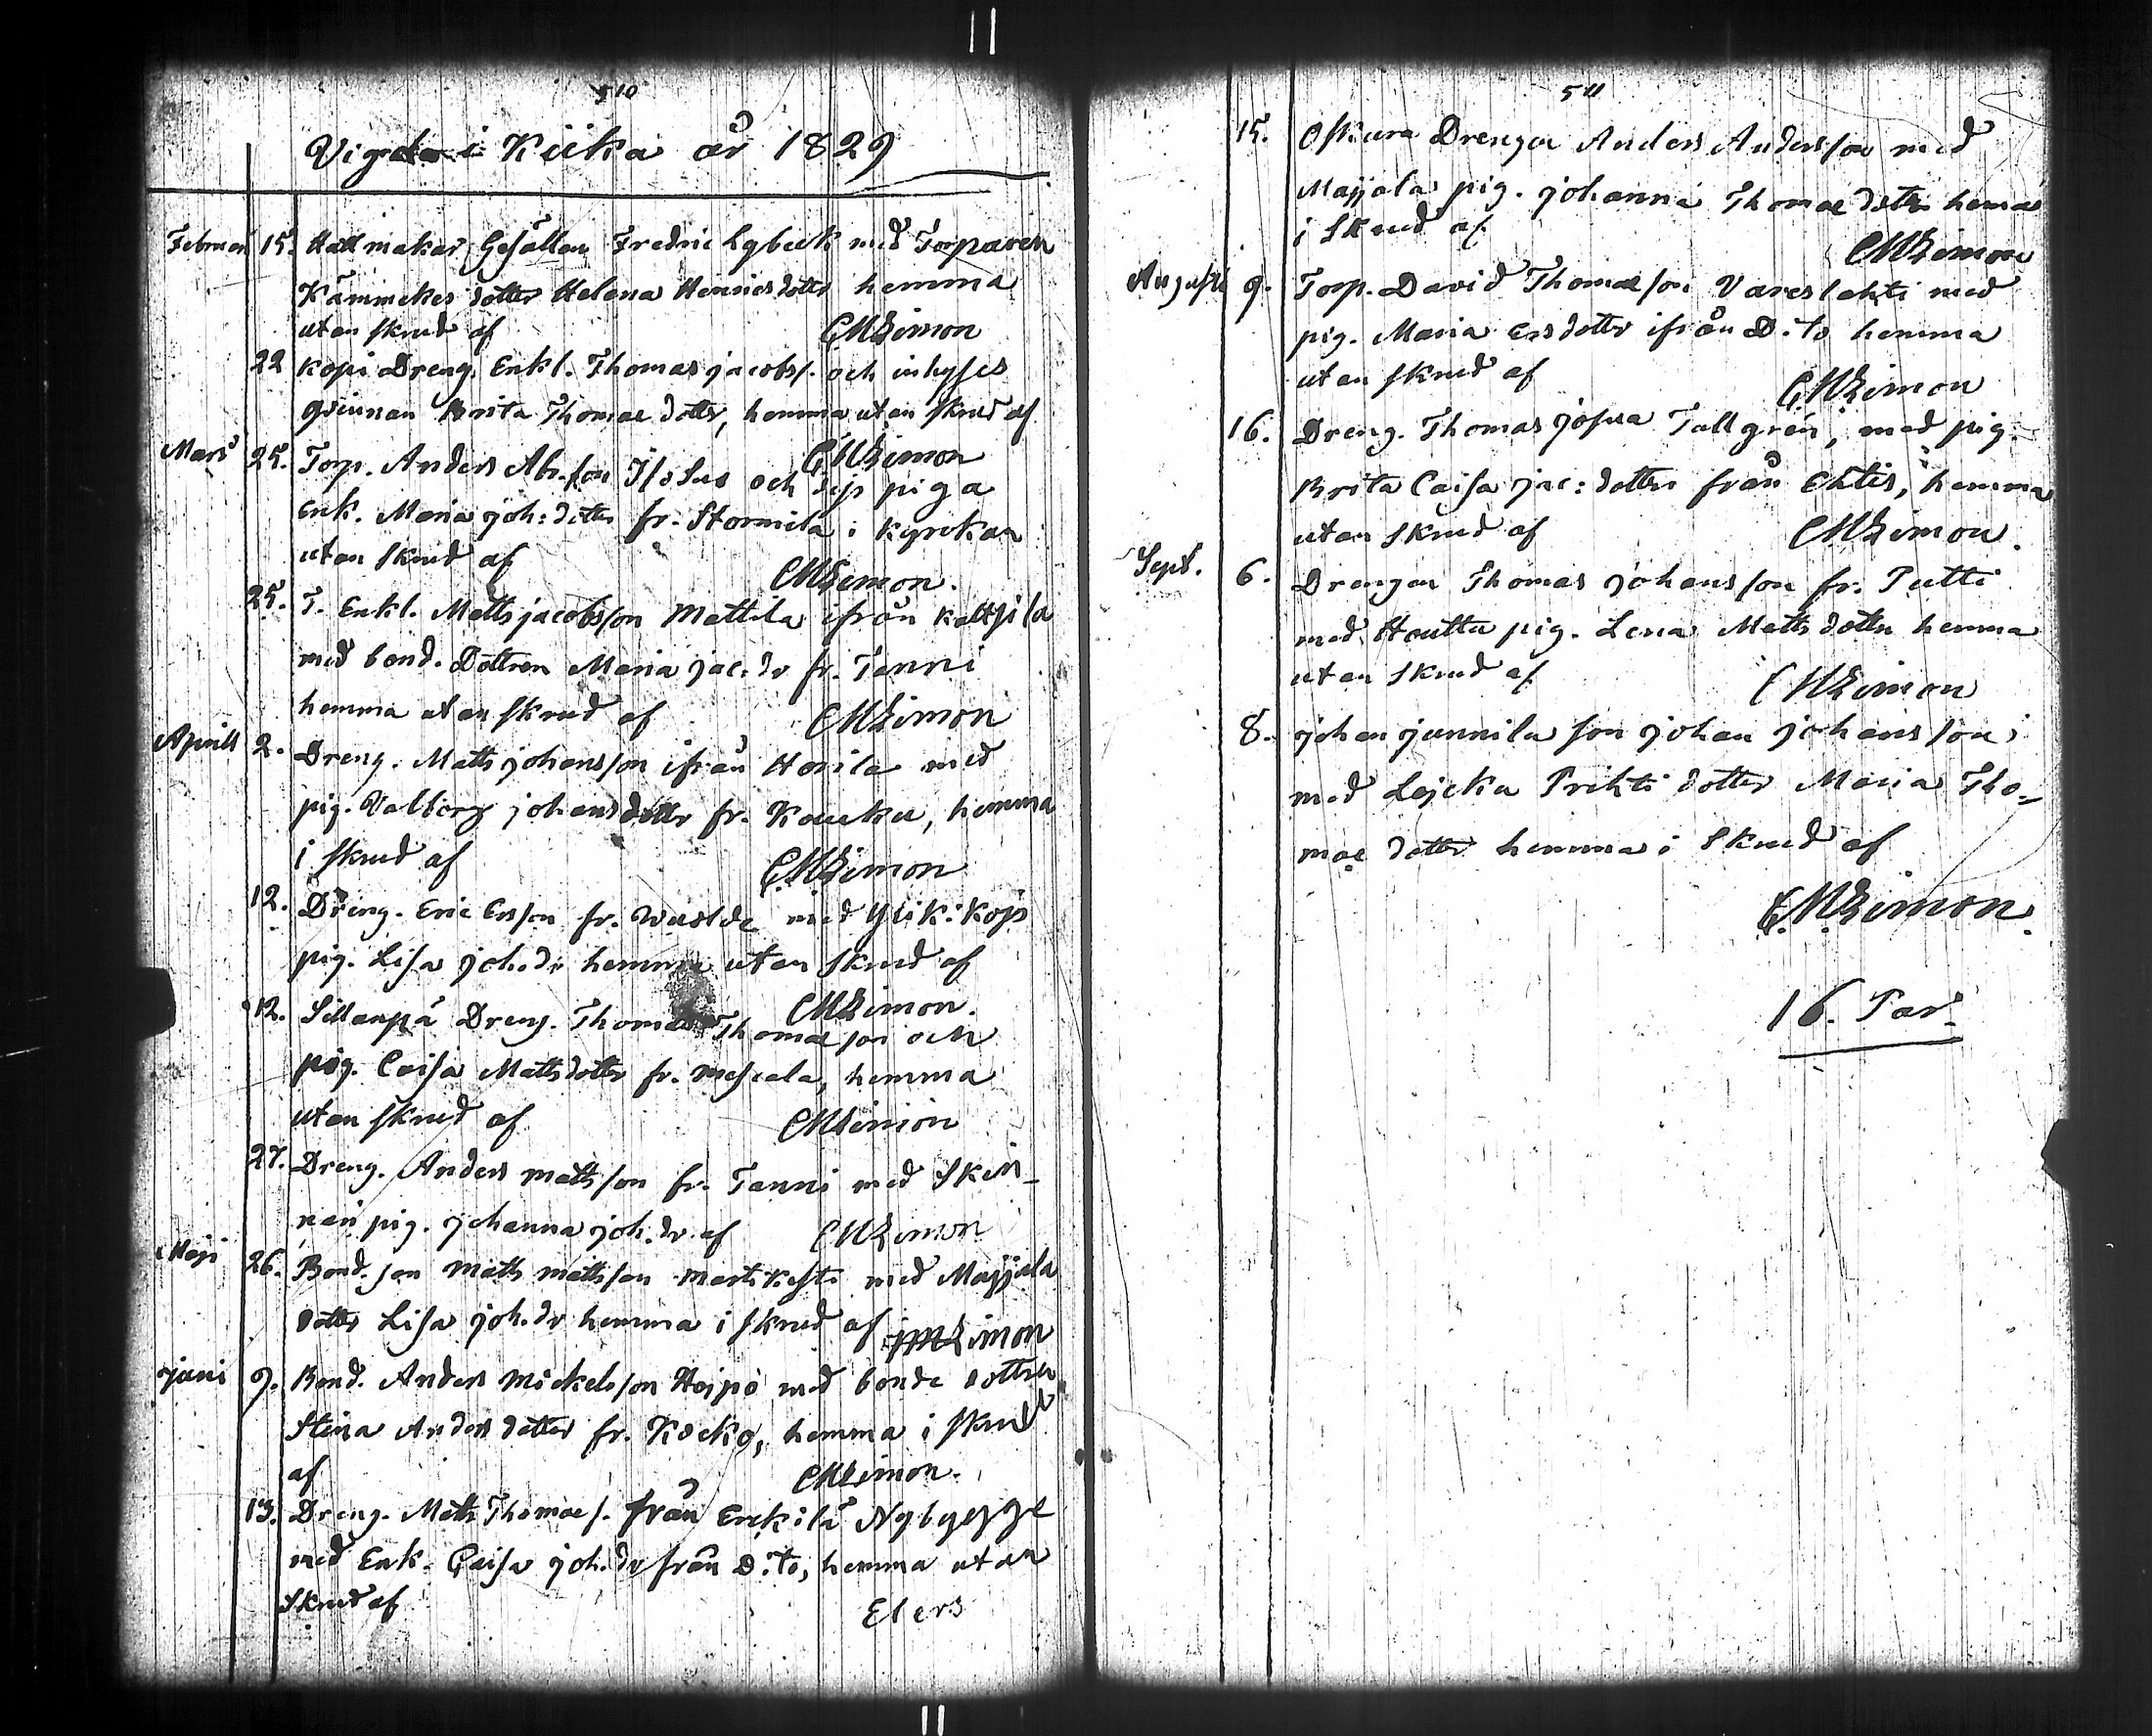 510
Vigda i Kiika år 1829
Februari 15. Hattmakar Gesällen Fredric Lybeck med Torparen
Kämmekes dotter Helena Henricsdotter hemma
utan skrud af CMLimon
22 Kopi Dreng. Enkl. Thomas jacobs/. och inhyses
qvinnan Brita Thomae dotter, hemma utan skrud af
CMLimon
Mars 25. Torp. Anders Abr.son och piga
Enk. Maria joh: dotter fr. Stormila i kyrkan
utan skrud af CMLimon.
25. T. Enkl. Matts jacobsson Mattila ifrån
med bond. Dottren Maria jac. dr fr. Tanni
hemma utan skrud af CMLimon
Aprill 2. Dreng. Matts johansson ifrån Horila med
pig. Valborg johansdotter fr. Kauku, hemma
i skrud af CMLimon
12. Dreng. Eric Ersson fr. med
pig. Lisa joh. dr hemma utan skrud af
CMLimon.
12. Sillanpä Dreng. Thomas Thomae son och
pig. Caisa Mattsdotter fr. hemma
utan skrud af CMLimon
27. Dreng. Anders mattsson fr. Tanni med
pig. johanna joh. dr. af CMLimon
Maji 26. Bond. son Matts mattsson med Majjala
dotter Lisa joh. dr hemma i skrud af CMLimon
juni 9. Bond. Anders Mickelsson Hojpo med bonde dottren
Stina Anders dotter fr. Kocko, hemma i skrud
af CMLimon.
13. Dreng. Matts Thomae s. från Erckilä Nybygge
med Enk. Caisa joh. dr från D:to, hemma utan
Skrud af Elers
511
15. Oskura Drengen Anders Andersson med
Majjala pig. johanna Thomae dotter hema
i Skrud af CMLimon
Augusti 9. Torp. David Thomaeson Vareslahti med
pig. Maria Ersdotter ifrån D:to hemma
utan skrud af CMLimon
16. Dreng. Thomas josua Tallgrén, med pig.
Brita Caisa jac: dotter från Ehtis, hemma
utan Skrud af CMLimon.
Sept. 6. Drengen Thomas johansson fr. Putti
med Houttu pig. Lena Matts dotter hemma
utan Skrud af CMLimon
8. johan junnila son johan johansson
med Lejcku Prihti dotter Maria Tho-
mae dotter hemma i Skrud af
CMLimon.
16. Par.